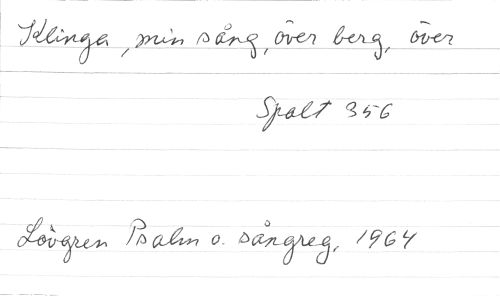 Klinga, min sång, över berg, över
Spalt 356
Lövgren Psalm o. sångreg, 1964